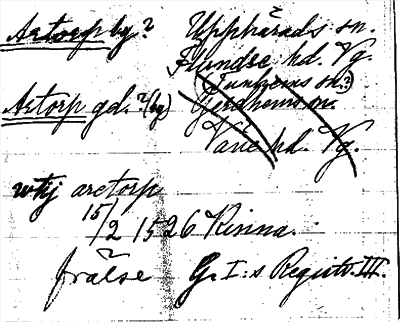 Artorp by? Upphärads sn.
Flundre hd. Vg.
(Tunhems sn.?)
Artorp gd.?(by) Gerdhems sn.
Väne hd. Vg.
wtij arctorp
15/2 1526 Kinna.
frälse G. I:s Registr. III.